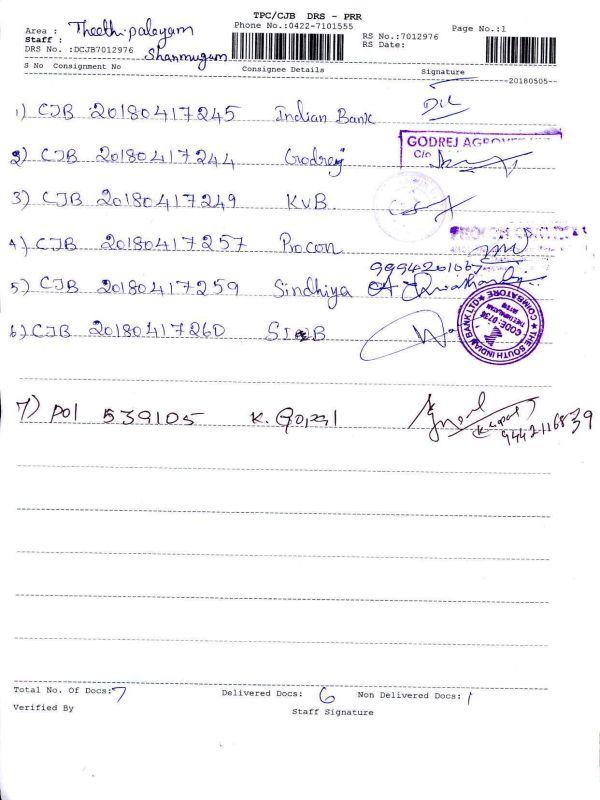 TPC/CJB DRS - PRR
Area : Theethipalayam
Phone No.:0422-7101555
Page No.:1
Staff : Shanmugam
RS No.:7012976
DRS No. :DCJB7012976
RS Date:
S No Consignment No Consignee Details Signature
--20180505--
1) CJB 20180417245 Indian Bank
2) CJB 20180417244 Godrej
GODREJ AGROVET
C/o
3) CJB 20180417249 KVB
4) CJB 20180417257 Procon
9994201067
5) CJB 20180417259 Sindhiya
6) CJB 20180417260 SIB
THE SOUTH INDIAN BANK LTD COIMBATORE
CODE:0736
7) POI 539105 K. Gopal
K. Gopal
9442116839
Total No. Of Docs: 7 Delivered Docs: 6 Non Delivered Docs: 1
Verified By Staff Signature